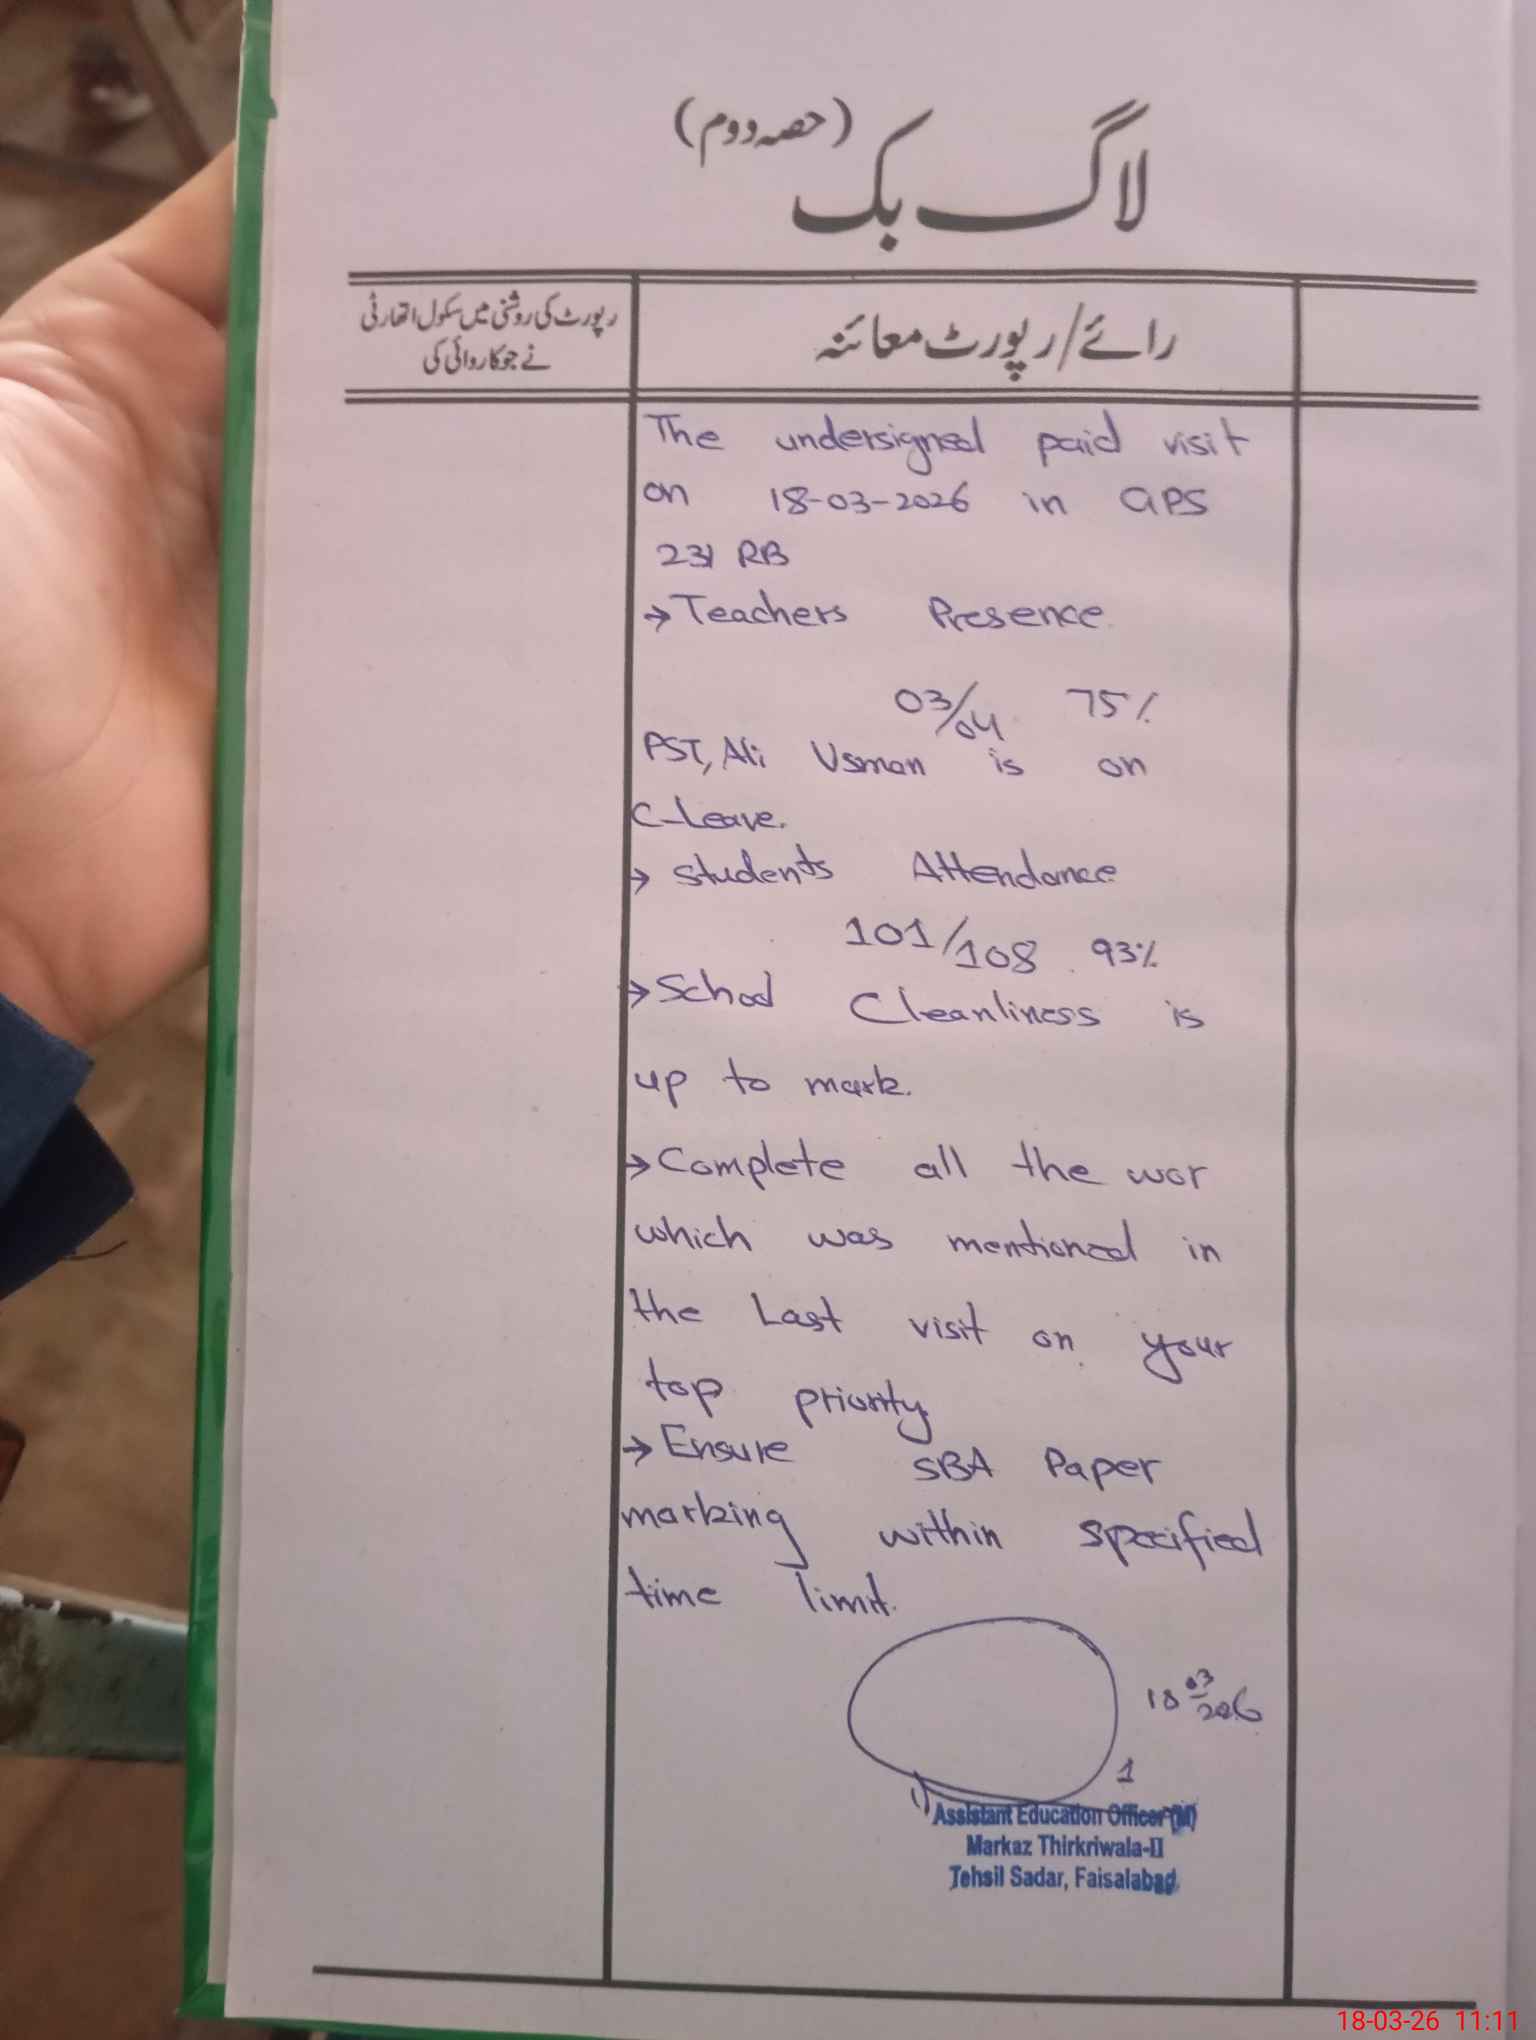 لاگ بک (حصہ دوم)
رائے/رپورٹ معائنہ
رپورٹ کی روشنی میں سکول اتھارٹی
نے جو کاروائی کی
The undersigned paid visit
on 18-03-2026 in GPS
231 RB
→ Teachers Presence.
03/04 75%
PST, Ali Usman is on
C-Leave.
→ Students Attendance
101/108 93%
→ School Cleanliness is
up to mark.
→ Complete all the wor
which was mentioned in
the Last visit on your
top priority
→ Ensure SBA Paper
marking within specified
time limit.
18 03/2026
Assistant Education Officer (M)
Markaz Thirkriwala-II
Tehsil Sadar, Faisalabad.
18-03-26 11:11